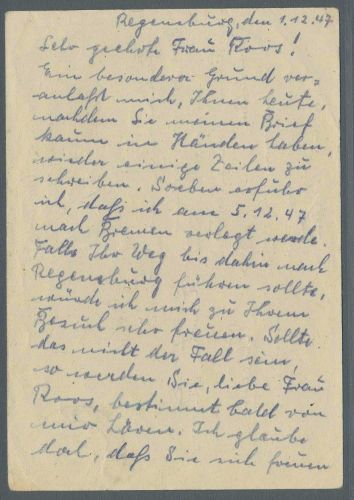 Regensburg, den 1.12.47
Sehr geehrte Frau Roos!
Ein besonderer Grund ver=
anlaßt mich, Ihnen heute,
nachdem Sie meinen Brief
kaum in Händen haben,
wieder einige Zeilen zu
schreiben. Soeben erfuhr
ich, daß ich am 5.12.47
nach Bremen verlegt werde.
Falls Ihr Weg bis dahin nach
Regensburg führen sollte,
würde ich mich zu Ihrem
Besuch sehr freuen. Sollte
das nicht der Fall sein,
so werden Sie, liebe Frau
Roos, bestimmt bald von
mir hören. Ich glaube
doch, daß Sie sich freuen